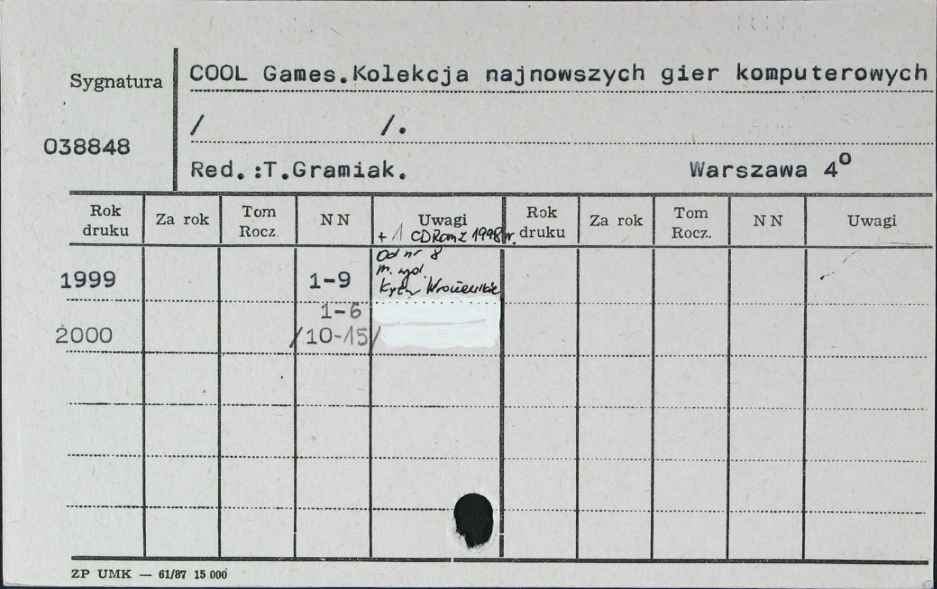 Sygnatura
COOL Games.Kolekcja najnowszych gier komputerowych
/ /.
038848
Red.:T.Gramiak. Warszawa 4º
Rok druku Za rok Tom Rocz. N N Uwagi Rok druku Za rok Tom Rocz. N N Uwagi
+ 1 CD Rom z 1998 r.
od nr 8
1999 1-9 m. wyd.
1-6
2000 /10-15/
ZP UMK — 61/87 15 000